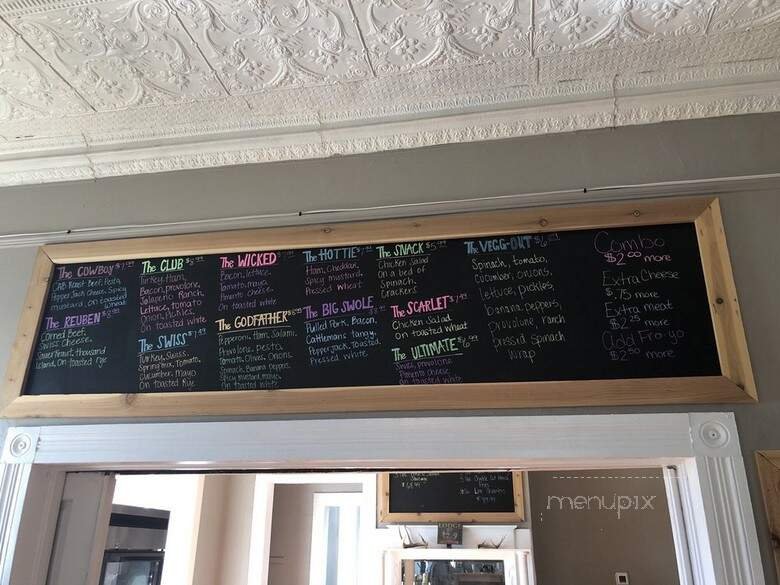 The COWBOY $7.99
CAB Roast Beef, Pesto,
Pepper Jack Cheese, Spicy
mustard, on toasted
wheat
The REUBEN $8.99
Corned Beef,
Swiss Cheese,
Sauerkraut, thousand
island, on toasted rye
The CLUB $8.99
Turkey, Ham,
Bacon, provolone,
Jalapeno Ranch,
Lettuce, tomato
Onion, Pickles,
On toasted White
The SWISS $7.99
Turkey, Swiss,
Springmix, Tomato,
cucumber, mayo
On toasted Rye
The WICKED
Bacon, lettuce,
Tomato, mayo,
Pimento cheese
On toasted white
The GODFATHER
Pepperoni, Ham, Salami,
Provolone, pesto,
Tomato, Olives, Onions,
Spinach, Banana peppers,
Spicy mustard, mayo
On toasted white
The HOTTIE
Ham, Cheddar,
Spicy mustard,
Pressed Wheat
The BIG SWOLE
Pulled Pork, Bacon,
Cattlemans tangy,
Pepperjack, Toasted,
Pressed white
The SNACK $5.99
Chicken Salad
on a bed of
Spinach,
Crackers
The SCARLET $7.99
Chicken Salad
on toasted wheat
The ULTIMATE $6.99
Swiss, provolone
Pimento cheese
on toasted white
The VEGG-OUT
Spinach, tomato,
cucumber, onions,
lettuce, pickles,
banana peppers,
provolone, ranch
pressed spinach
wrap
Combo
$2.00 more
Extra Cheese
$.75 more
Extra meat
$2.25 more
add Fro-yo
$2.50 more
LODGE
menupix